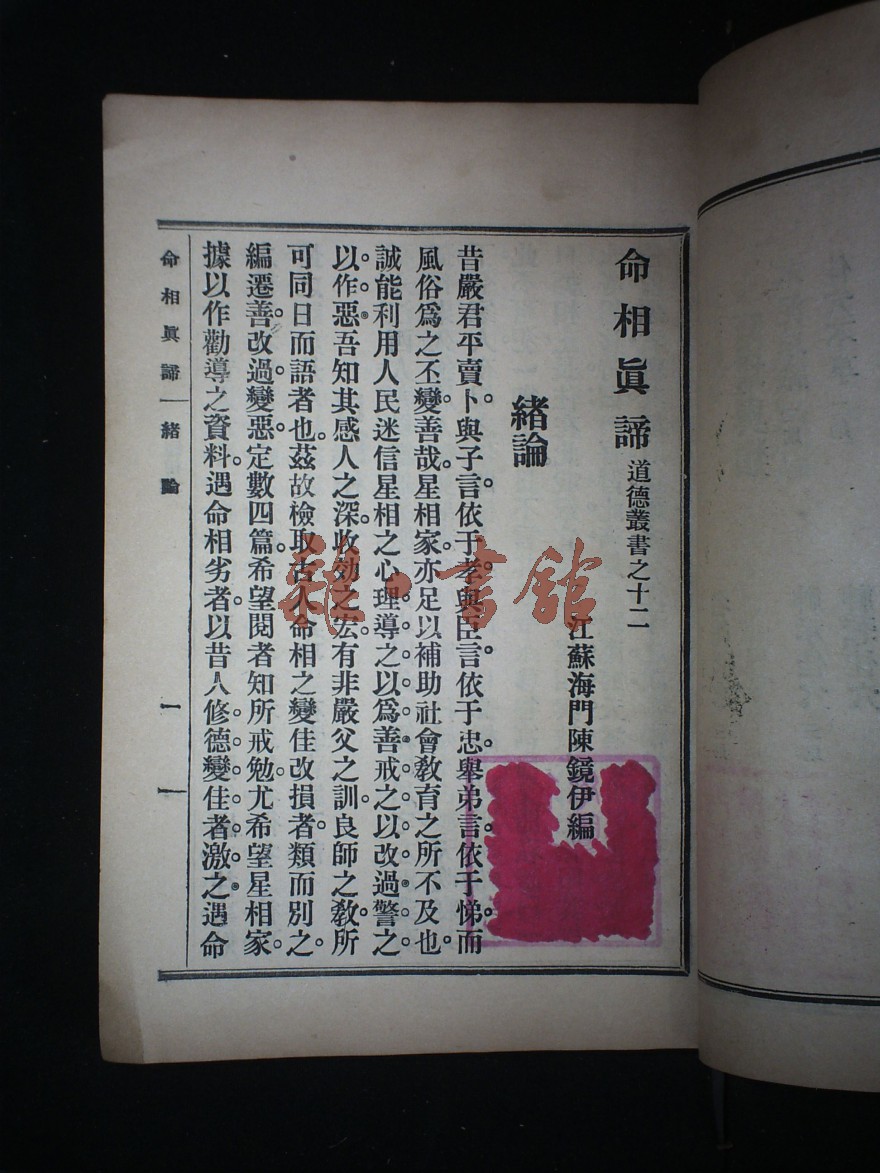 命相眞諦 道德叢書之十二
江蘇海門陳鏡伊編
緒論
昔嚴君平賣卜。與子言。依于孝。與臣言。依于忠。舉弟言。依于悌。而
風俗爲之丕變。善哉。星相家亦足以補助社會敎育之所不及也。
誠能利用人民迷信星相之心理。導之以爲善。戒之以改過。警之
以作惡。吾知其感人之深。收効之宏。有非嚴父之訓。良師之敎。所
可同日而語者也。茲故檢取古人命相之變佳改損者。類而別之。
編遷善。改過。變惡。定數四篇。希望閱者知所戒勉。尤希望星相家。
據以作勸導之資料。遇命相劣者。以昔人修德變佳者激之。遇命
命相眞諦 緒論 一
雜·書館